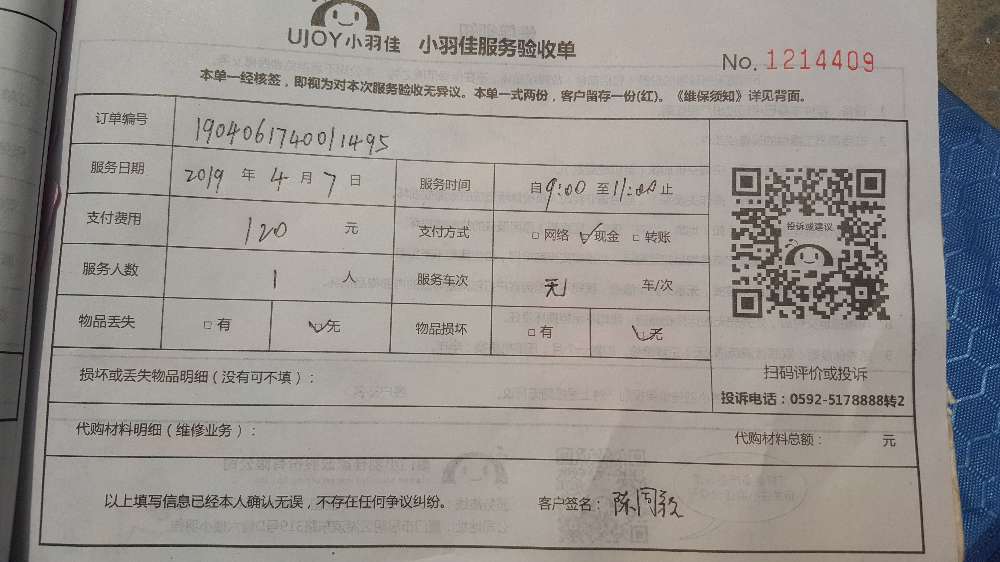 UJOY小羽佳 小羽佳服务验收单
No. 1214409
本单一经核签，即视为对本次服务验收无异议。本单一式两份，客户留存一份(红)。《维保须知》详见背面。
订单编号 1904061740011495
服务日期 2019 年 4 月 7 日 服务时间 自9:00 至11:00止
支付费用 120 元 支付方式 □网络 ☑现金 □转账
服务人数 1 人 服务车次 无 车/次
物品丢失 □有 ☑无 物品损坏 □有 ☑无
投诉或建议
扫码评价或投诉
投诉电话：0592-5178888转2
损坏或丢失物品明细（没有可不填）：
代购材料明细（维修业务）：
代购材料总额： 元
以上填写信息已经本人确认无误，不存在任何争议纠纷。 客户签名：陈